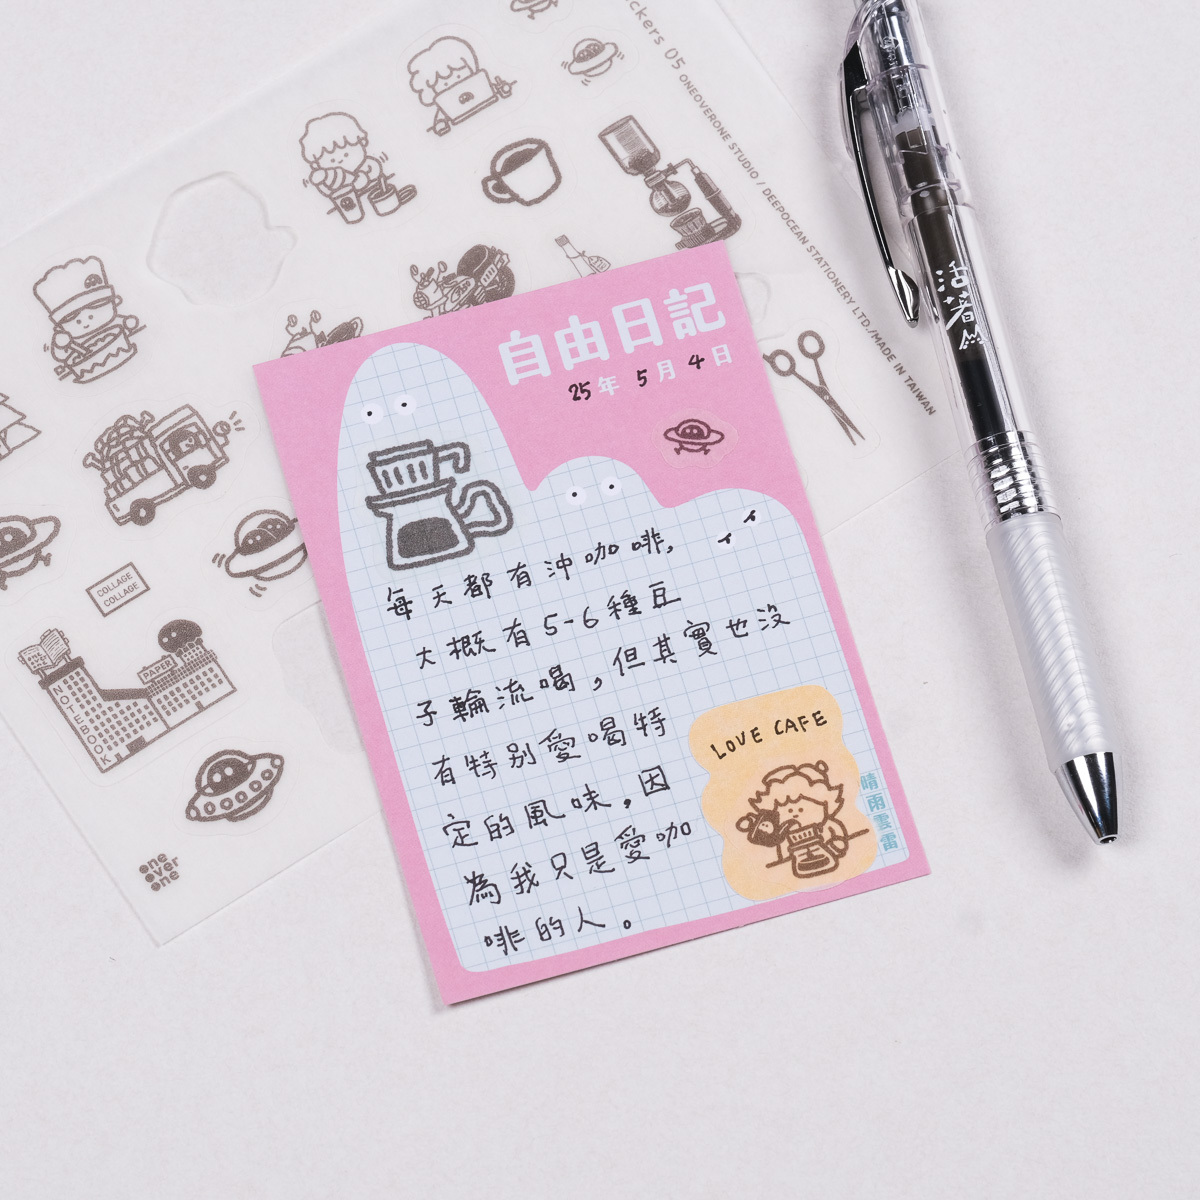 ckers 05 ONEOVERONE STUDIO / DEEPOCEAN STATIONERY LTD./MADE IN TAIWAN
自由日記
25年 5月 4日
每天都有沖咖啡,
大概有5-6種豆
子輪流喝,但其實也沒
有特別愛喝特
定的風味,因
為我只是愛咖
啡的人。
LOVE CAFE
晴雨雲雷
COLLAGE
COLLAGE
NOTEBOOK
PAPER
one
over
one
活著